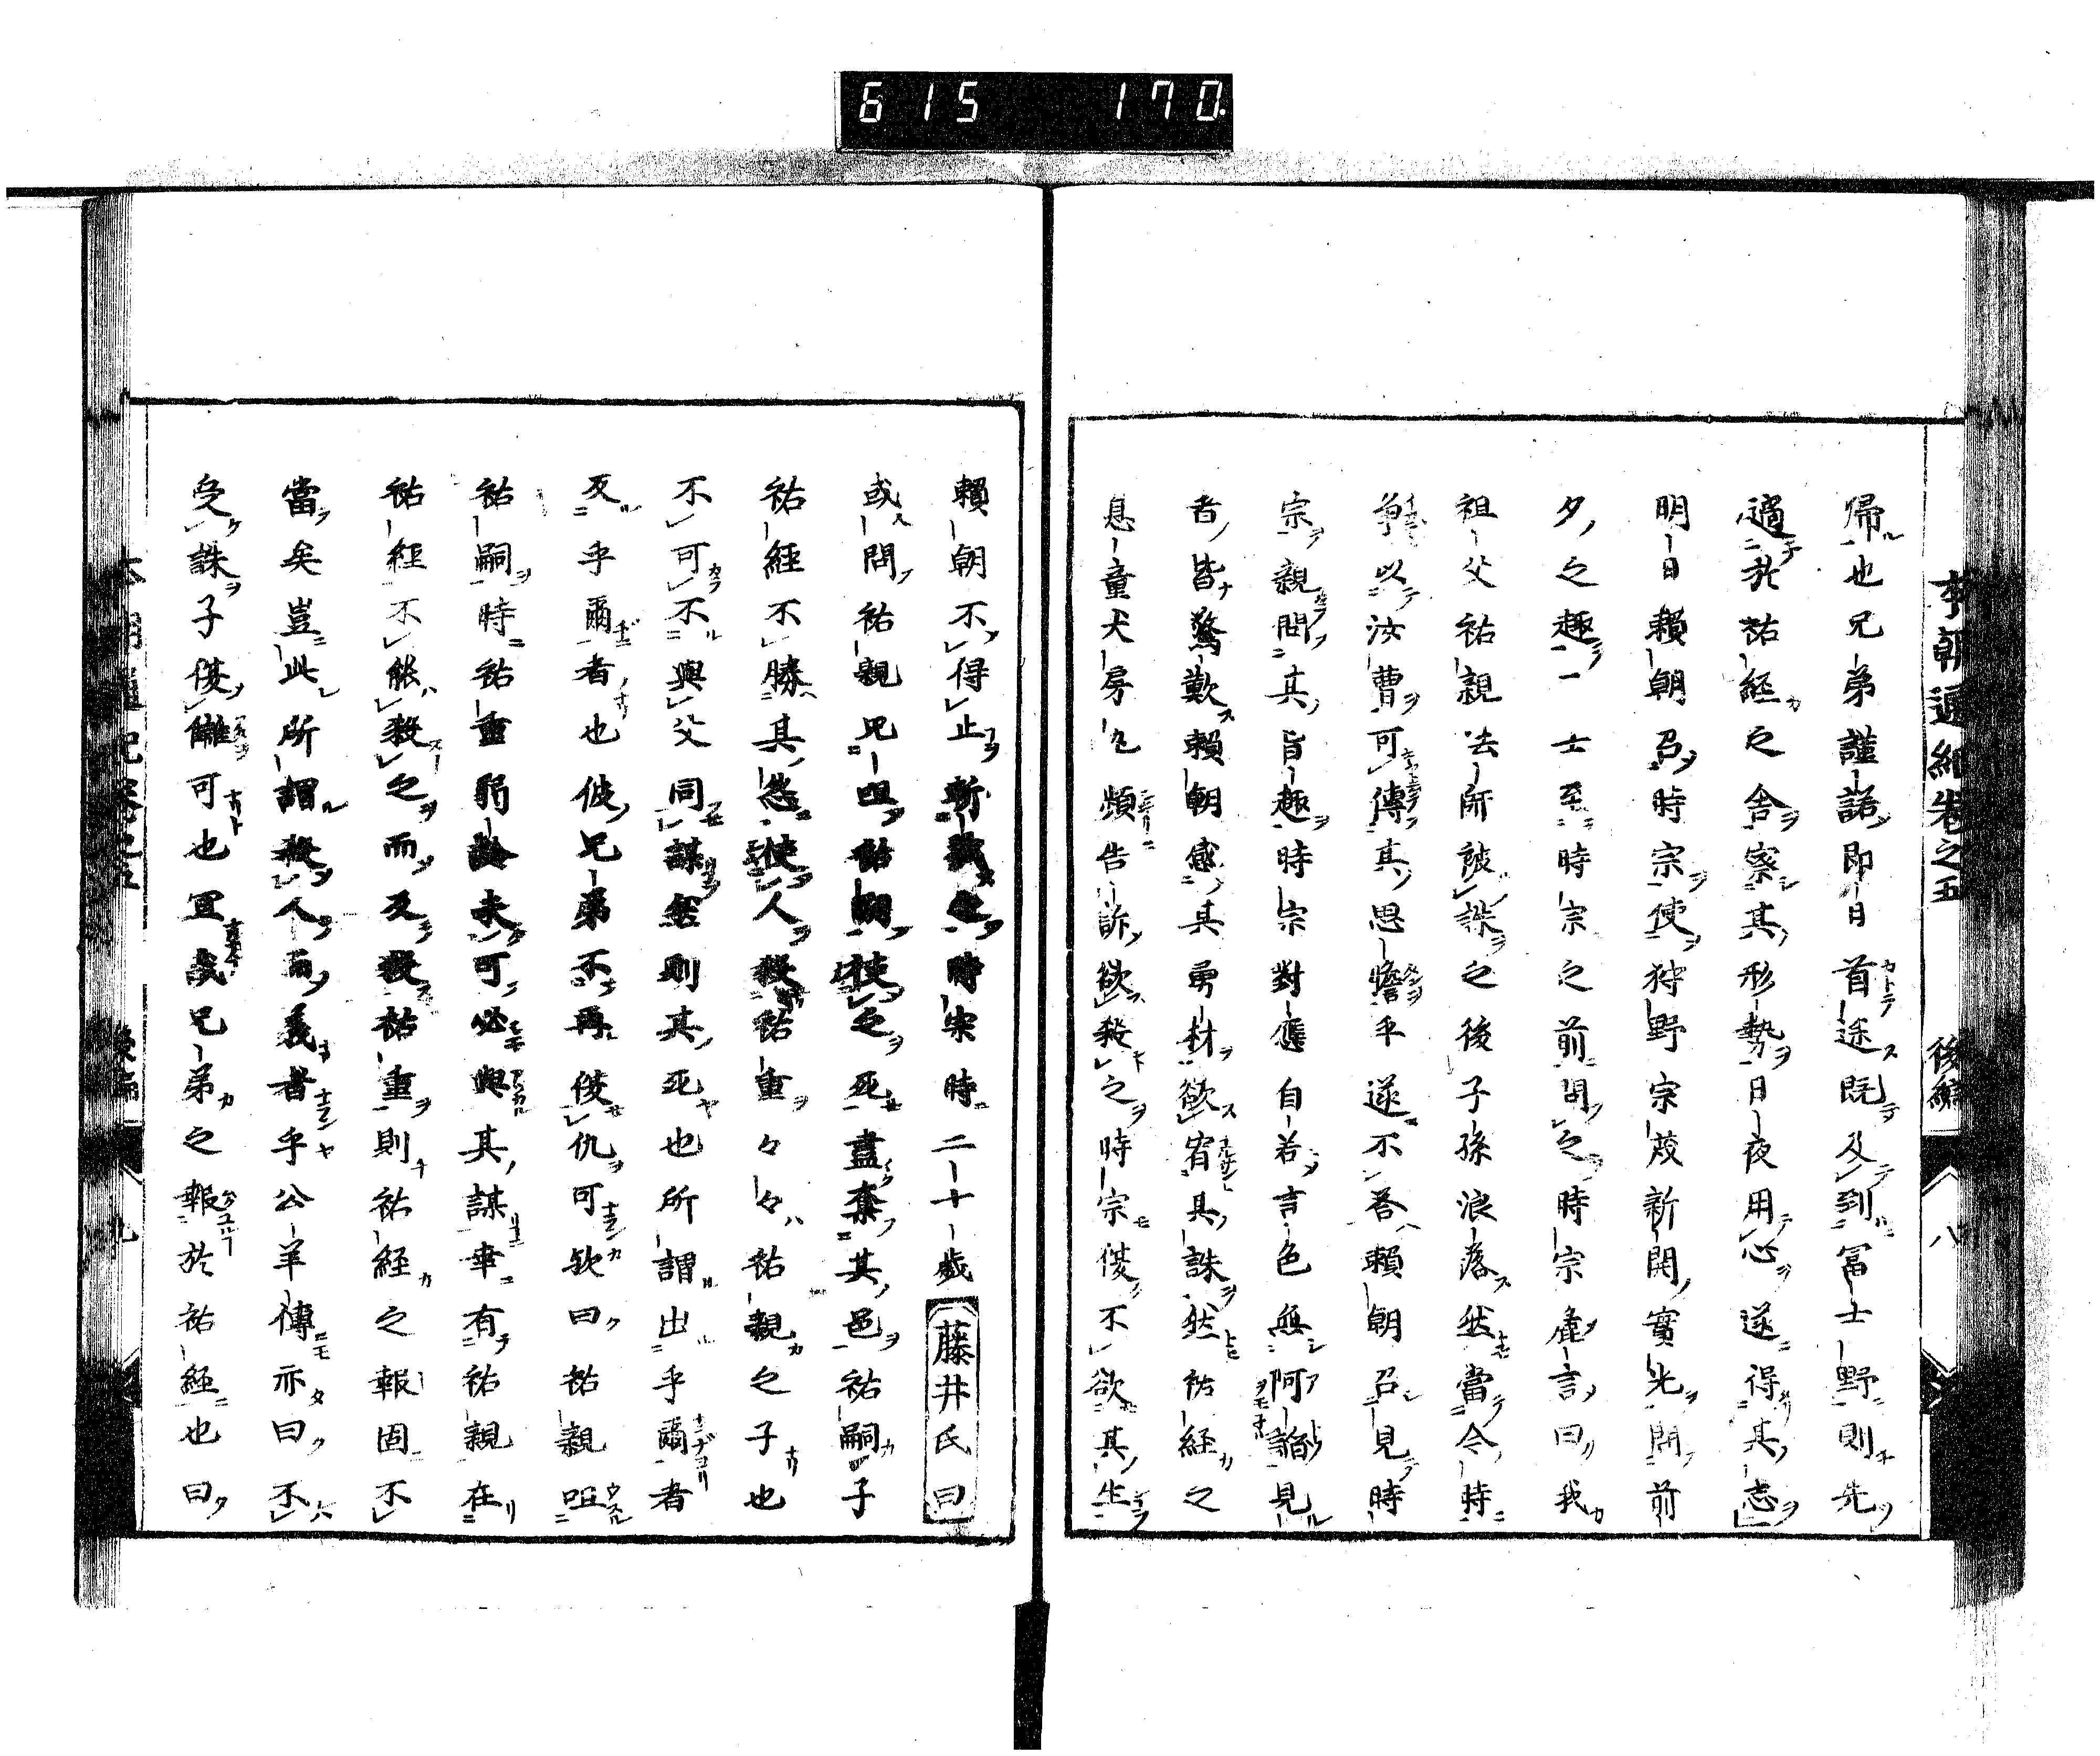 615 170
本朝通紀卷之五 後編 八
歸也兄弟謹諾即日首途既及到冨士野則先
適於祐経之舎察其形勢日夜用心遂得其志
明日賴朝召時宗使狩野宗茂新開實光問前
夕之趣一士至時宗之前問之時宗慮言曰我
祖父祐親法師被誅之後子孫浪落然當今時
爭以汝曹可傳其思憺乎遂不荅賴朝召見時
宗親問其旨趣時宗對應自若言色無阿諂見
者皆驚歎賴朝感其勇材欲宥其誅然祐経之
息童犬房丸頻告訴欲殺之時宗復不欲其生
賴朝不得止斬戮之時宗時二十歳 藤井氏曰
或問祐親兄咀祐嗣使之死盡奪其邑祐嗣子
祐経不勝其怨使人殺祐重々々祐親之子也
不可不與父同謀然則其死也所謂出乎爾者
反乎爾者也彼兄弟不再復仇可欤曰祐親咀
祐嗣時祐重弱齢未可必與其謀幸有祐親在
祐経不能殺之而反殺祐重則祐経之報固不
當矣豈此所謂殺人而義者乎公羊傳亦曰不
受誅子復讎可也宜哉兄弟之報於祐経也曰
本朝通紀卷之五 後編 九